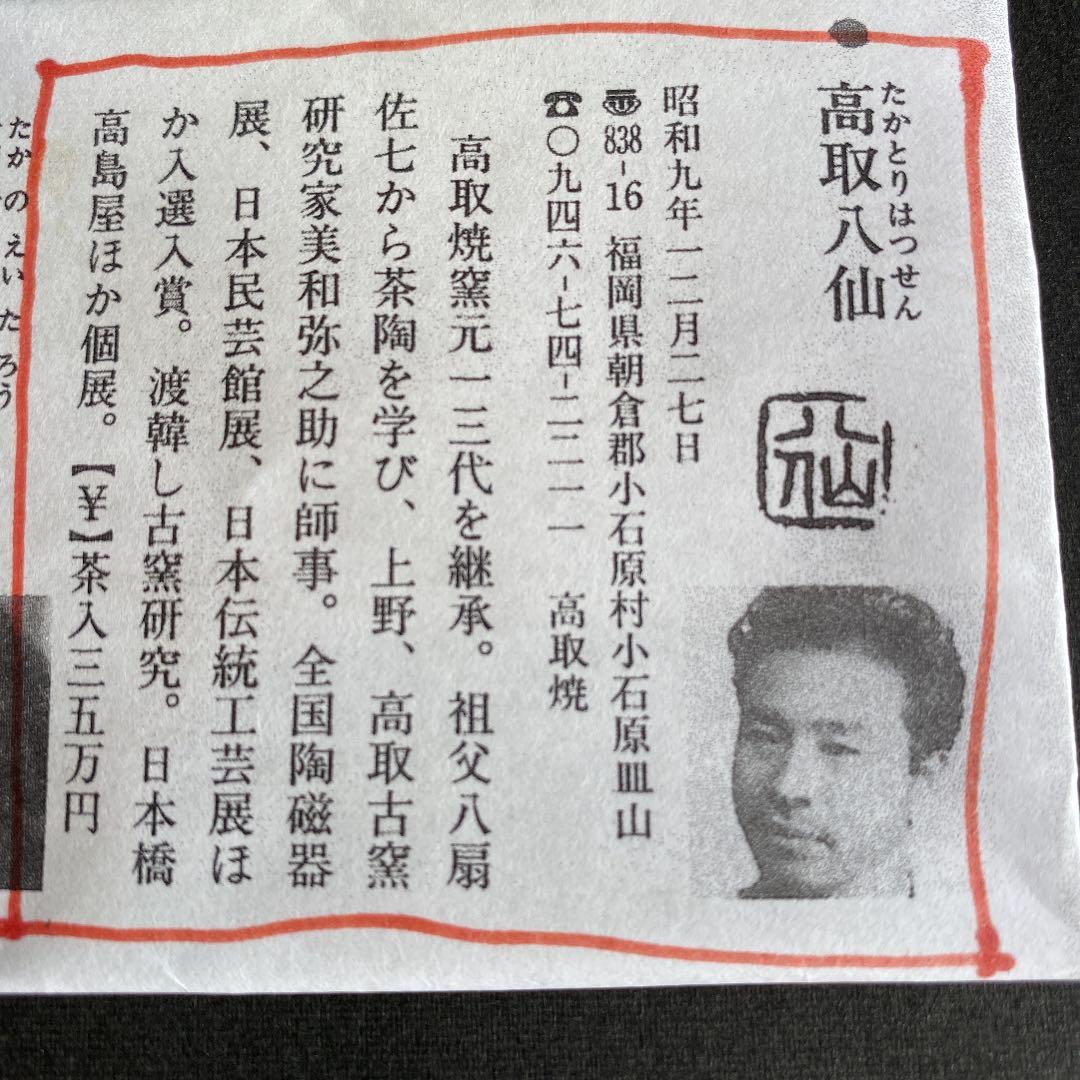 たかとりはつせん
高取八仙
八仙
昭和九年一二月二七日
〠838-16 福岡県朝倉郡小石原村小石原皿山
☎〇九四六-七四-二二一一 高取焼
高取焼窯元一三代を継承。祖父八扇
佐七から茶陶を学び、上野、高取古窯
研究家美和弥之助に師事。全国陶磁器
展、日本民芸館展、日本伝統工芸展ほ
か入選入賞。渡韓し古窯研究。日本橋
高島屋ほか個展。【¥】茶入三五万円
たかのえいたろう